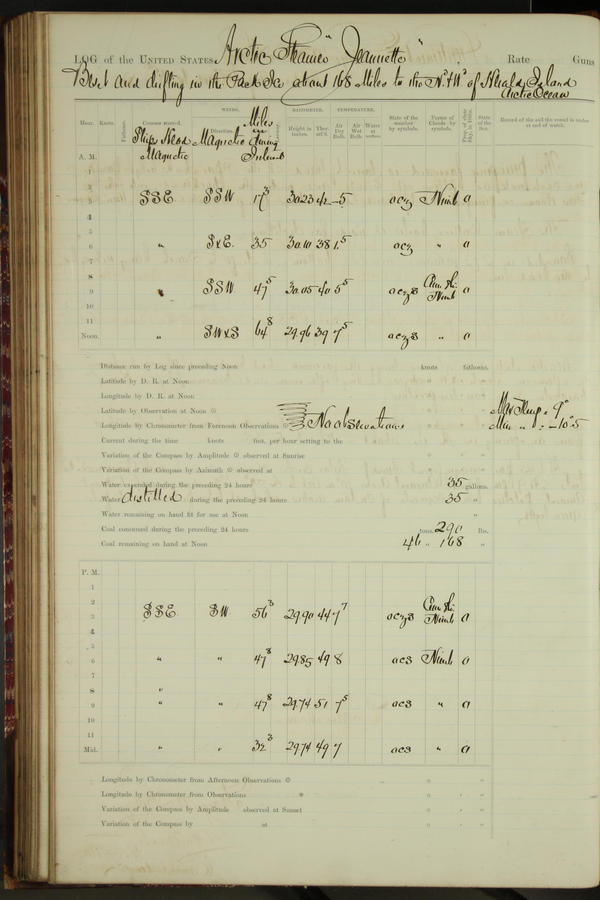 LOG of the UNITED STATES Arctic Steamer "Jeannette", Rate Guns
Beset and drifting in the Pack Ice about 168 Miles to the Nd & Wd of Herald Island
Arctic Ocean
WINDS. BAROMETER. TEMPERATURE.
Hour. Knots. Fathoms. Courses steered. Direction. Height in inches. Ther. att'd. Air Dry Bulb. Air Wet Bulb. Water at surface. State of the weather by symbols. Forms of Clouds by symbols. State of the Sea. Record of the sail the vessel is under at end of watch.
Ships Head Magnetic Magnetic Miles in during Interval
A. M.
1
2
3 SSE SSW 17³ 30.23 42 -5 ocz Nimb 0
4
5
6 " SxE. 35 30.10 38 1.5 ocz " 0
7
8
9 " SSW 47⁵ 30.05 40 5⁵ oczs Cum. St. Nimb 0
10
11
Noon. " SWxS 64⁸ 29.96 39 7⁵ oczs " 0
Distance run by Log since preceding Noon knots fathoms.
Latitude by D. R. at Noon ° ' "
Longitude by D. R. at Noon
Latitude by Observation at Noon Max Temp. 9°
Longitude by Chronometer from Forenoon Observations No observations Min " -10°.5
Current during the time knots fms. per hour setting to the
Variation of the Compass by Amplitude observed at Sunrise
Variation of the Compass by Azimuth observed at
Water expended during the preceding 24 hours 35 gallons.
Water distilled during the preceding 24 hours 35 "
Water remaining on hand fit for use at Noon "
Coal consumed during the preceding 24 hours tons. 290 lbs.
Coal remaining on hand at Noon 46 " 168 "
P. M.
1
2
3 SSE SW 56³ 29.90 44 7⁷ oczs Cum. St. Nimb 0
4
5
6 " " 47⁸ 29.85 49 8 ocs Nimb 0
7
8 "
9 " " 47⁸ 29.74 51 7⁵ ocs " 0
10
11
Mid. " " 32³ 29.74 49 7 ocs " 0
Longitude by Chronometer from Afternoon Observations
Longitude by Chronometer from Observations
Variation of the Compass by Amplitude observed at Sunset
Variation of the Compass by at